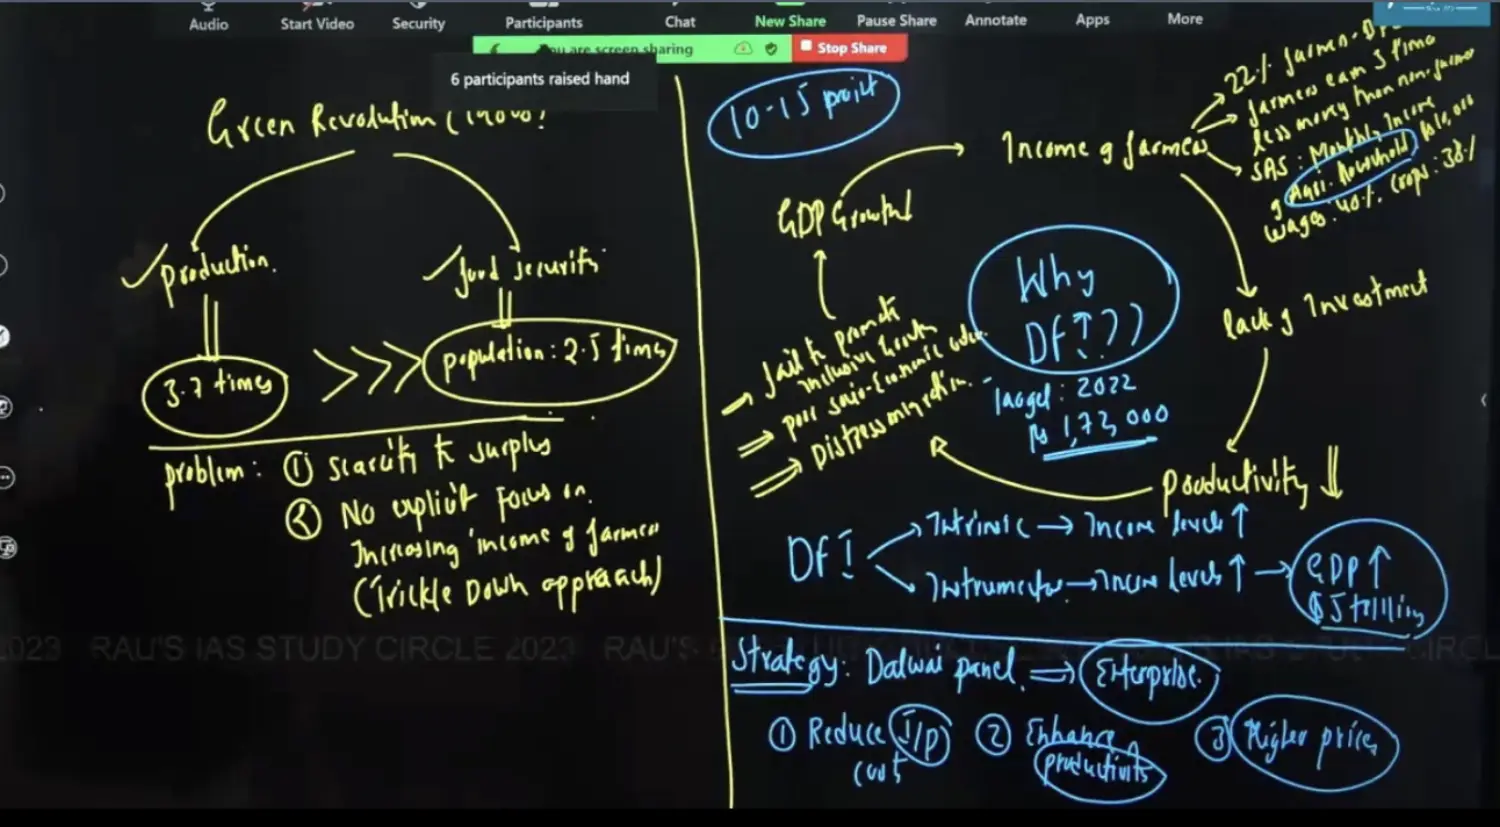 Audio
Start Video
Security
Participants
Chat
New Share
Pause Share
Annotate
Apps
More
You are screen sharing
Stop Share
6 participants raised hand
Green Revolution (1960s)
production
food security
3.7 times
population: 2.5 times
problem: ① Scarcity to surplus
② No explicit Focus on
Increasing income of farmer
(Trickle Down approach)
10-15 point
Income of farmers
22% farmers
farmers earn 3 times
less money than non-farmer
SAS: Monthly Income
of Agri. Household
wages: 40% Crops: 38%
GDP Growth
lack of Investment
Why
DFI??
Target: 2022
Rs 1,73,000
Fail to promote
inclusive Growth
poor socio-Economic
Distress migration
productivity
DFI
Intrinsic → Income levels ↑
Instrumental → Income levels ↑ → GDP ↑
RAU'S IAS STUDY CIRCLE 2023
Strategy: Dalwai panel ⇒ Enterprise
① Reduce I/P cost
② Enhance productivity
③ Higher prices